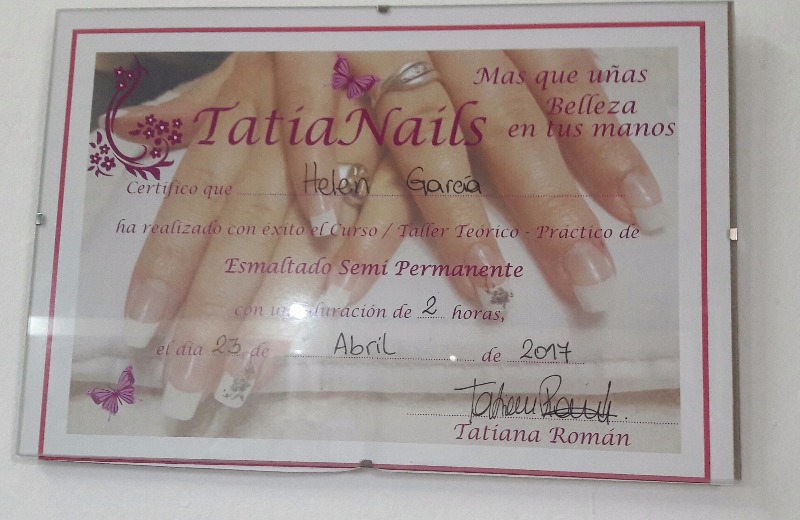 Mas que uñas
Belleza
en tus manos
TatiaNails
Certifico que Helen García
ha realizado con éxito el Curso / Taller Teórico - Práctico de
Esmaltado Semi Permanente
con una duración de 2 horas,
el dia 23 de Abril de 2017
Tatiana Román